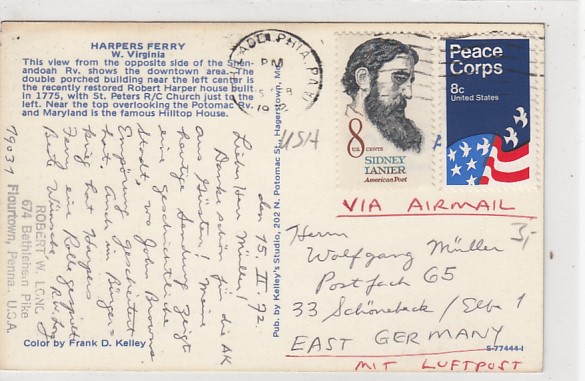 HARPERS FERRY
W. Virginia
This view from the opposite side of the Shen-
andoah Rv. shows the downtown area. The
double porched building near the left center is
the recently restored Robert Harper house built
in 1775, with St. Peters R/C Church just to the
left. Near the top overlooking the Potomac Rv.
and Maryland is the famous Hilltop House.
den 15. II. 72.
Lieber Herr Müller!
Danke schön für die AK
aus Güsten! Meine
heutige Sendung zeigt
eine geschichtliche
Stadt, wo John Browns
Empörung gescheitert
hat. Auch im Bürger-
krieg hat Harpers
Ferry eine Rolle gespielt.
Beste Wünsche,
ROBERT W. LONG
674 Bethlehem Pike
Flourtown, Penna. U.S.A.
19031
Color by Frank D. Kelley
Pub. by Kelley's Studio, 202 N. Potomac St., Hagerstown, Md.
PHILADELPHIA, PA
PM
USA
8
U.S. CENTS
SIDNEY
LANIER
American Poet
Peace
Corps
8c
United States
VIA AIRMAIL
3,-
Herrn
Wolfgang Müller
Postfach 65
33 Schönebeck/Elbe 1
EAST GERMANY
S-77444-1
MIT LUFTPOST